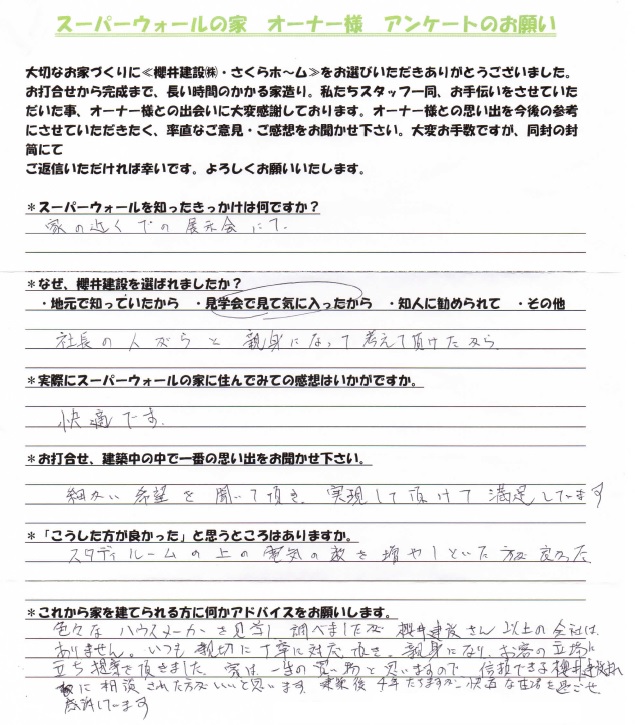 スーパーウォールの家　オーナー様　アンケートのお願い
大切なお家づくりに≪櫻井建設㈱・さくらホ～ム≫をお選びいただきありがとうございました。
お打合せから完成まで、長い時間のかかる家造り。私たちスタッフ一同、お手伝いをさせていた
だいた事、オーナー様との出会いに大変感謝しております。オーナー様との思い出を今後の参考
にさせていただきたく、率直なご意見・ご感想をお聞かせ下さい。大変お手数ですが、同封の封
筒にて
ご返信いただければ幸いです。よろしくお願いいたします。
＊スーパーウォールを知ったきっかけは何ですか？
家の近くでの展示会にて.
＊なぜ、櫻井建設を選ばれましたか？
・地元で知っていたから　・見学会で見て気に入ったから　・知人に勧められて　・その他
社長の人がらと親身になって考えて頂けたから.
＊実際にスーパーウォールの家に住んでみての感想はいかがですか。
快適です.
＊お打合せ、建築中の中で一番の思い出をお聞かせ下さい。
細かい希望を聞いて頂き、実現して頂けて満足しています
＊「こうした方が良かった」と思うところはありますか。
スタディルームの上の電気の数を増やしといた方が良かった
＊これから家を建てられる方に何かアドバイスをお願いします。
色々なハウスメーカーを見学し、調べましたが櫻井建設さん以上の会社は
ありません。いつも親切に丁寧に対応頂き、親身になり、お客の立場に
立ち提案を頂きました。家は一生の買い物と思いますので、信頼できる櫻井建設さん
に相談された方がいいと思います。築後4年たちますが、快適な生活を過ごせ
感謝しています